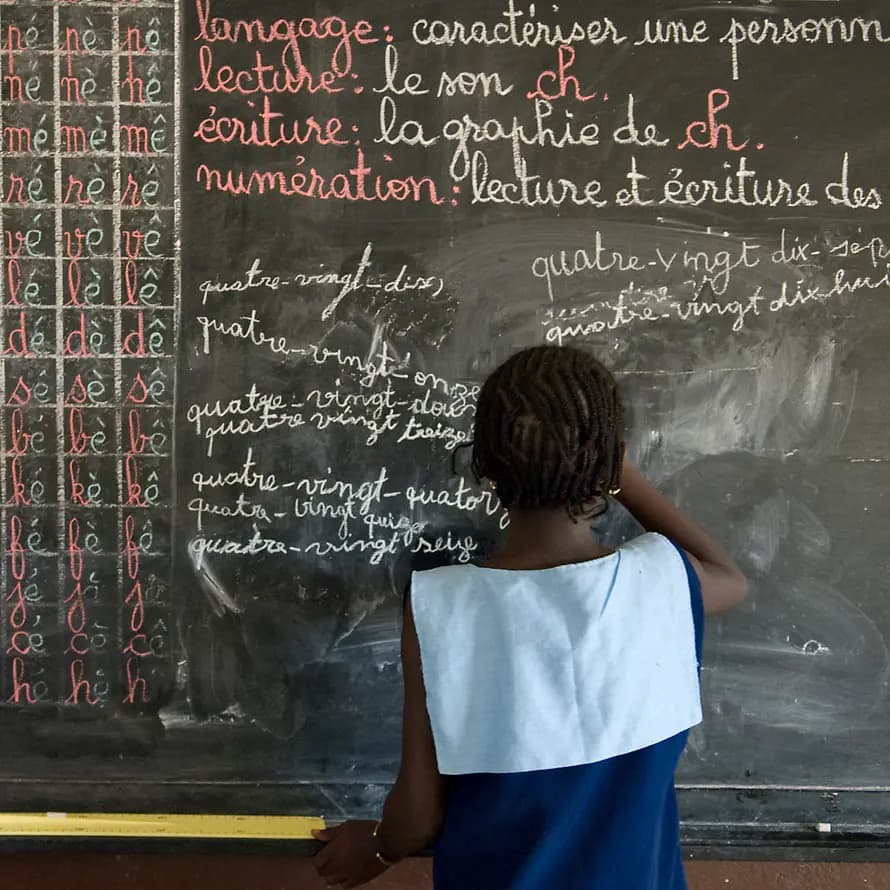 pé pè pê
né nè nê
mé mè mê
ré rè rê
vé vè vê
lé lè lê
dé dè dê
sé sè sê
bé bè bê
ké kè kê
fé fè fê
jé jè j
cé cè cê
hé hè h
langage: caractériser une personn
lecture: le son ch.
écriture: la graphie de ch.
numération: lecture et écriture des
quatre-vingt-dix
quatre-vingt-onze
quatre-vingt-douz
quatre vingt treize
quatre-vingt-quatorz
quatre-vingt quize
quatre-vingt seize
quatre-vingt dix-sep
quatre-vingt dix-hui